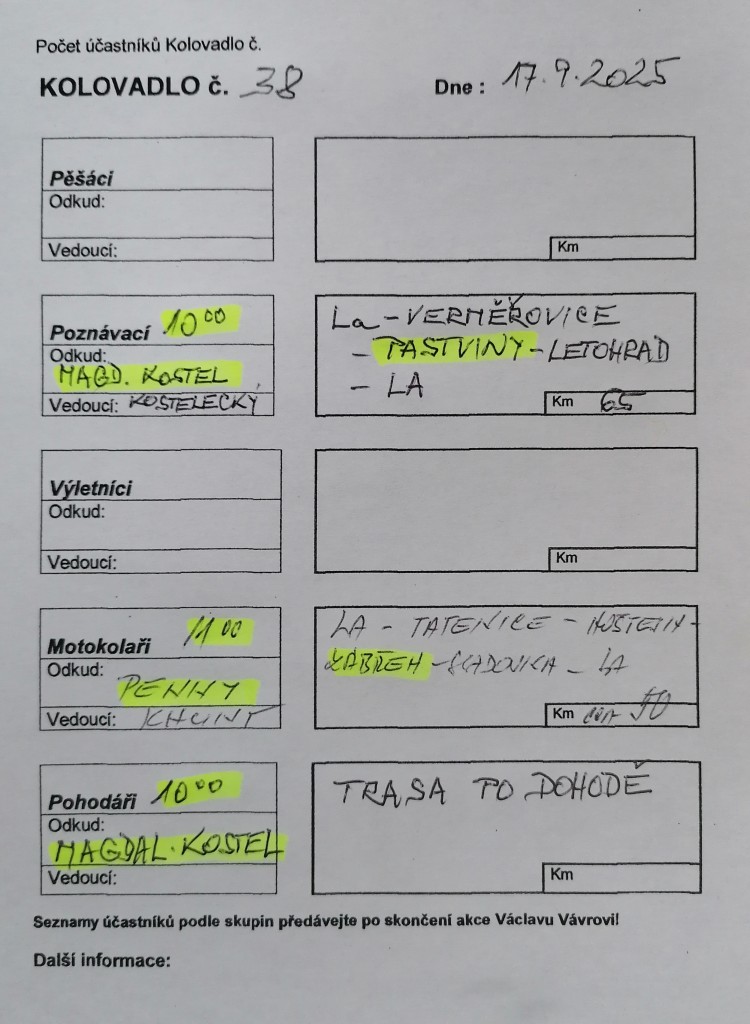 Počet účastníků Kolovadlo č.
KOLOVADLO č. 38 Dne : 17.9.2025
Pěšáci
Odkud:
Vedoucí:
Km
Poznávací 10 00
Odkud:
MAGD. KOSTEL
Vedoucí: KOSTELECKÝ
La - VERMĚŘOVICE
- PASTVINY - LETOHRAD
- LA
Km 65
Výletníci
Odkud:
Vedoucí:
Km
Motokolaři 11 00
Odkud:
PENNY
Vedoucí:
LA - TATENICE - HOŠTEJN -
ZÁBŘEH - - LA
Km 50
Pohodáři 10 00
Odkud:
MAGDAL. KOSTEL
Vedoucí:
TRASA PO DOHODĚ
Km
Seznamy účastníků podle skupin předávejte po skončení akce Václavu Vávrovi!
Další informace: